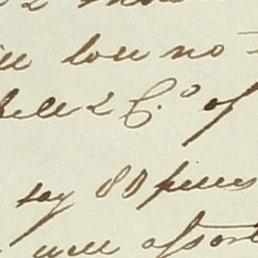 will lose no -
Bell & Co. of
say 80 pieces
well assort